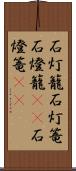 石灯籠石灯篭
石燈籠石
燈篭